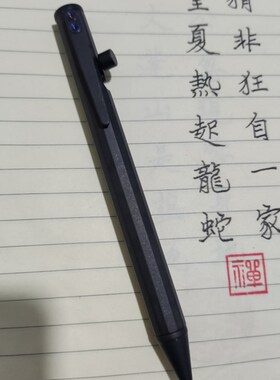 非狂自一家
夏熱起龍蛇
禪